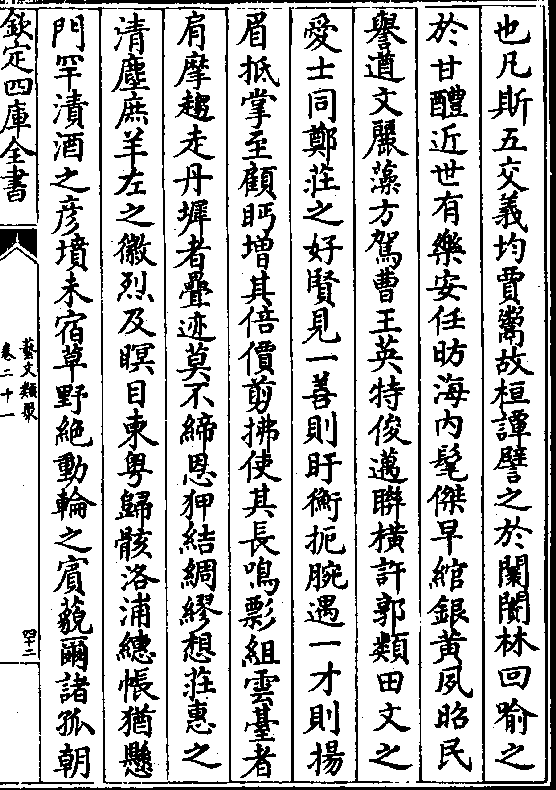 也凡斯五交義均賈鬻故桓譚譬之於闤闠林回喻之
於甘醴近世有樂安任昉海内髦傑早綰銀黃夙昭民
譽遒文麗藻方駕曹王英特俊邁聯橫許郭類田文之
愛士同鄭莊之好賢見一善則盱衡扼腕遇一才則揚
眉抵掌至顧眄增其倍價剪拂使其長鳴影組雲臺者
肩摩趨走丹墀者疊迹莫不締恩狎結綢繆想莊惠之
清塵庶羊左之徽烈及瞑目東粤歸骸洛浦繐帳猶懸
門罕漬酒之彦墳未宿草野絶動輪之賓藐爾諸孤朝
欽定四庫全書
藝文類聚
卷二十一
四十二